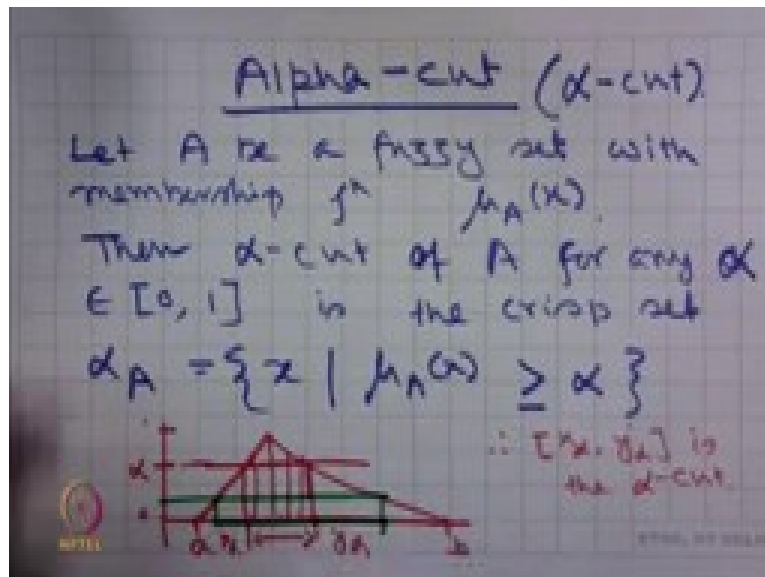 Alpha-cut (α-cut)
Let A be a fuzzy set with
membership fⁿ μ_A(x).
Then α-cut of A for any α
∈ [0, 1] is the crisp set
α_A = {x | μ_A(x) ≥ α}
∴ [x_α, y_α] is
the α-cut.
α
a x_α y_α b
NPTEL